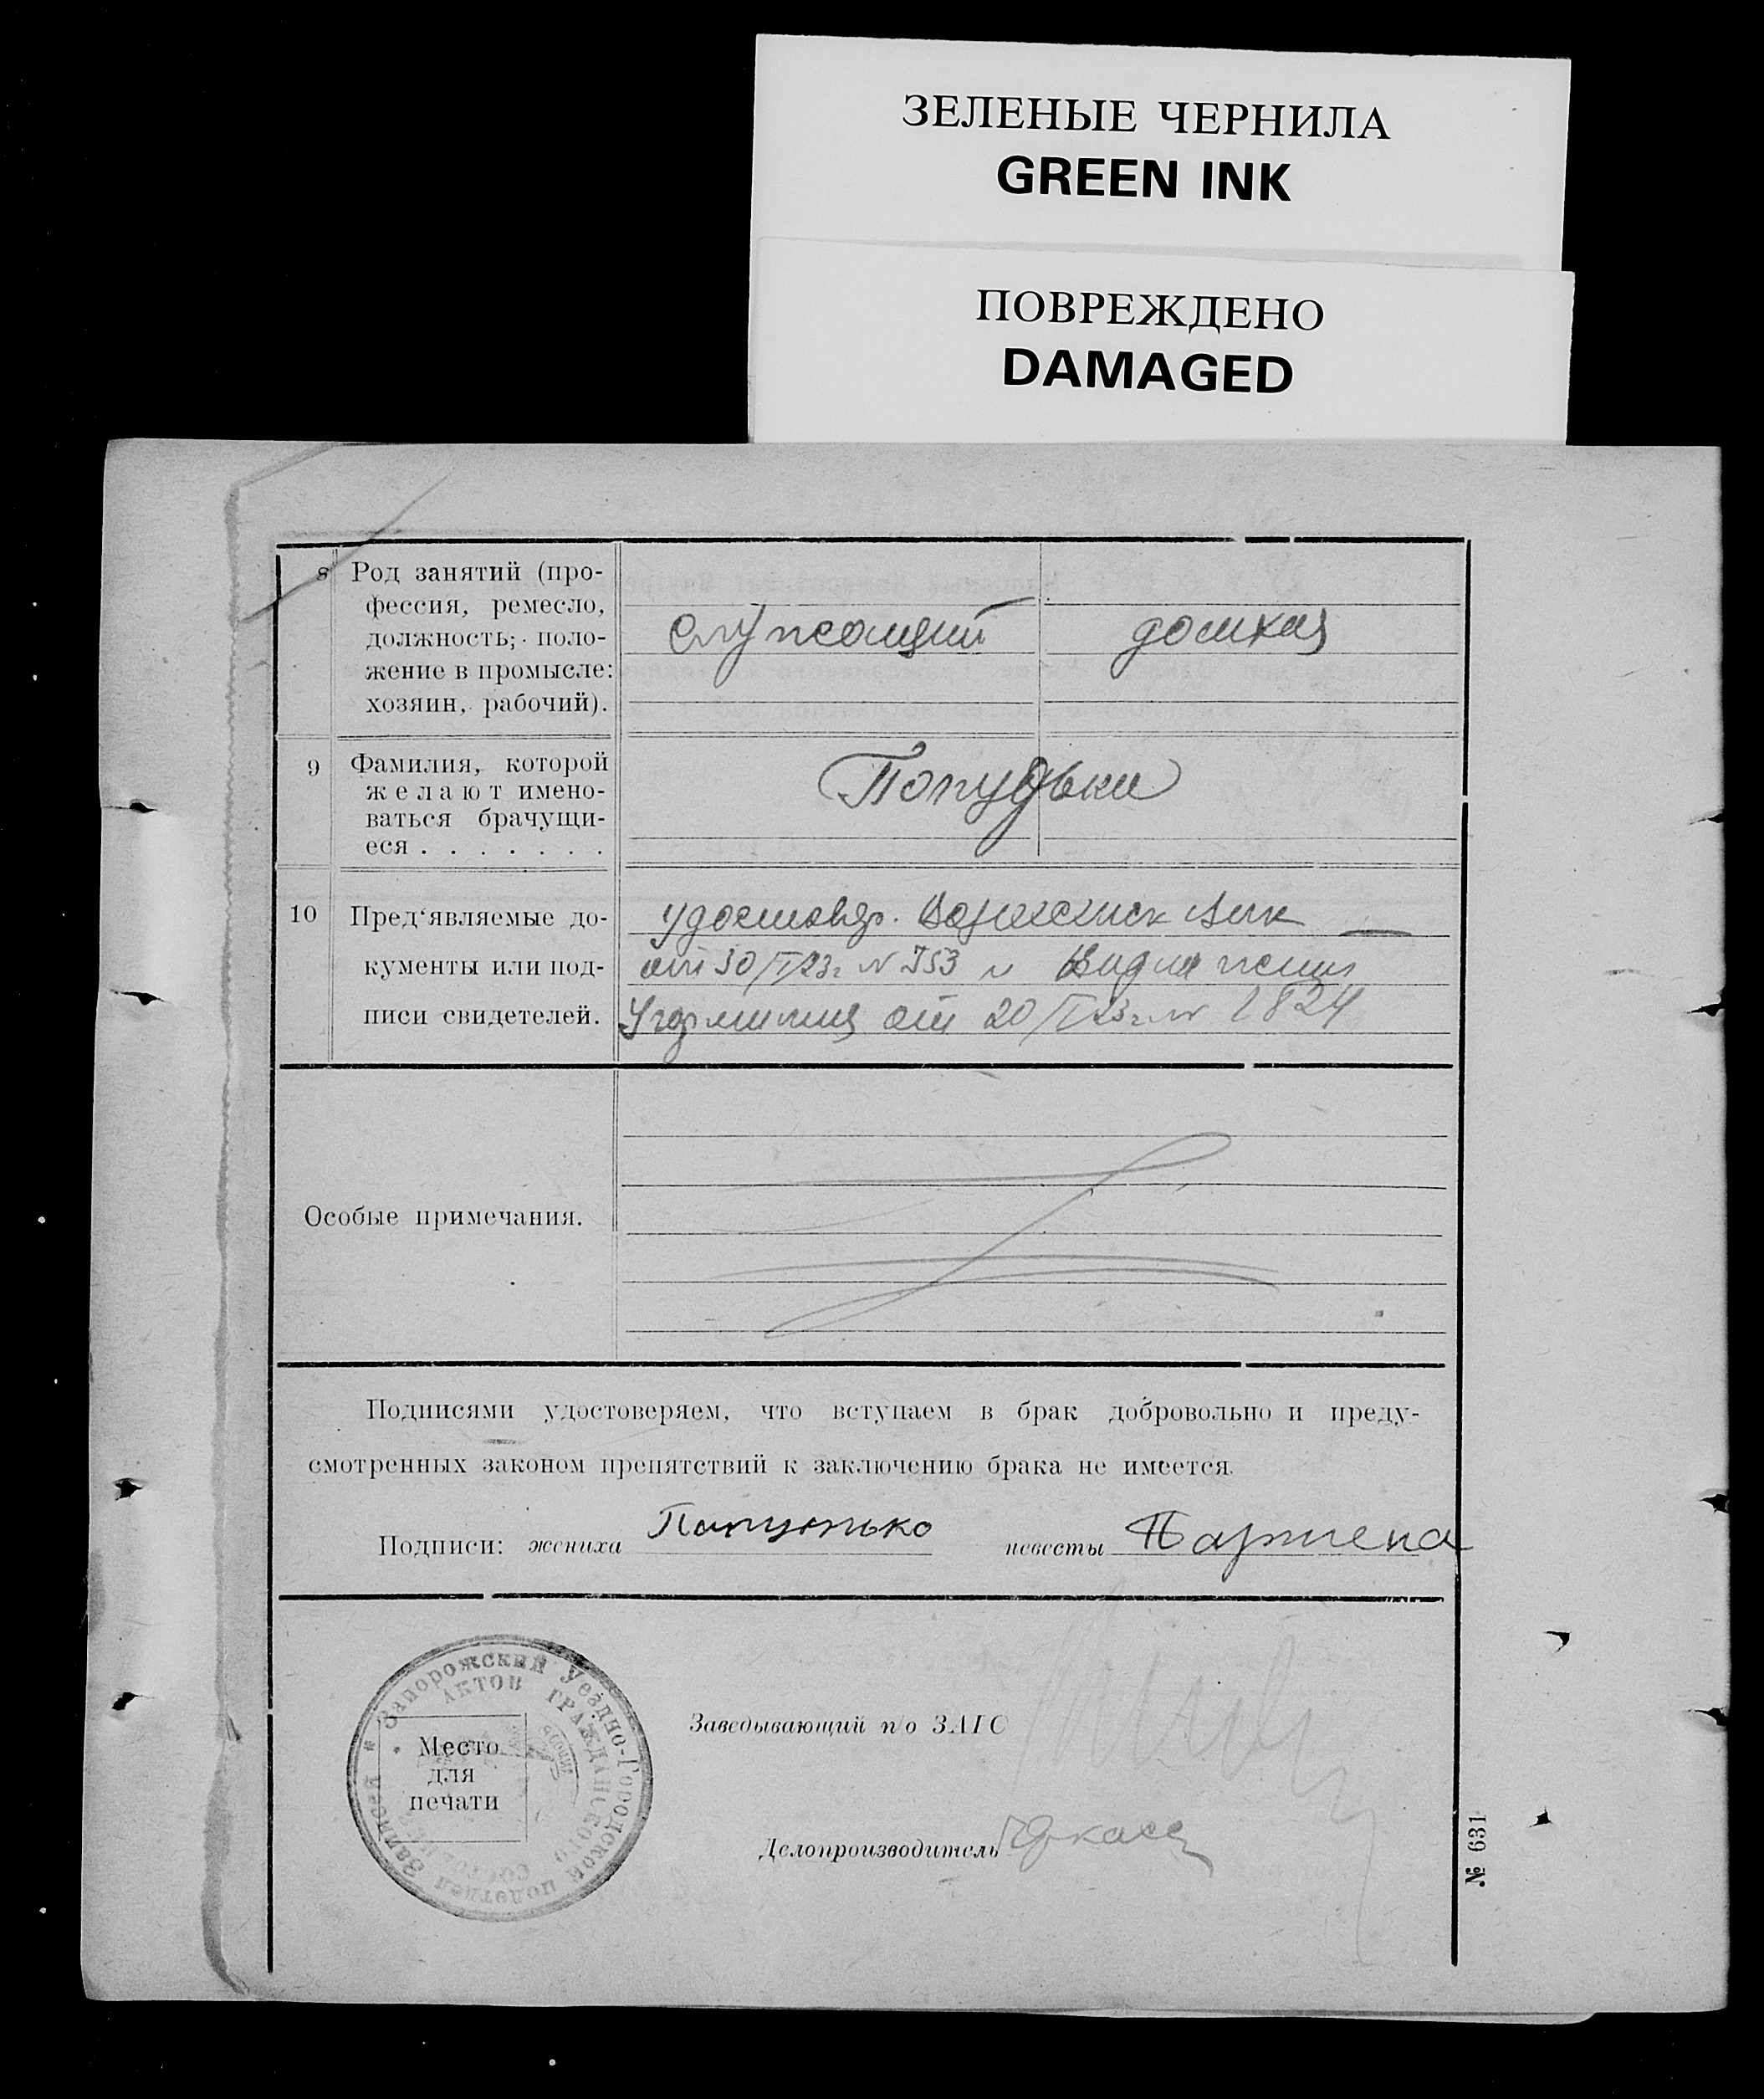 ЗЕЛЕНЫЕ ЧЕРНИЛА
GREEN INK
ПОВРЕЖДЕНО
DAMAGED
8 Род занятий (про-
фессия, ремесло,
должность; поло-
жение в промысле:
хозяин, рабочий).
служащий
домхоз
9 Фамилия, которой
желают имено-
ваться брачущи-
еся . . . . . . .
10 Пред‘являемые до-
кументы или под-
писи свидетелей.
удостовер.
от 30/I 23г N 353 и
от 20/I 23г. N 1824
Особые примечания.
Подписями удостоверяем, что вступаем в брак добровольно и преду-
смотренных законом препятствий к заключению брака не имеется.
Подписи: жениха невесты
Запорожский Уездно-Городской подотдел Записей
Актов Гражданского Состояния
Место
для
печати
Заведывающий п/о ЗАГС
Делопроизводитель
№ 631